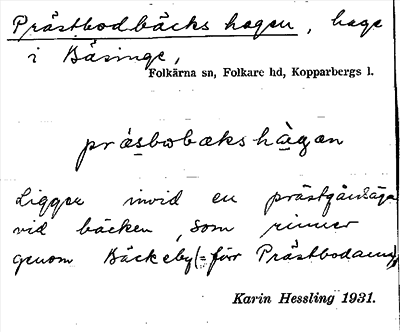 Prästbodbäcks hagen, hage
i Bäsinge,
Folkärna sn, Folkare hd, Kopparbergs l.
präsbobækshàgan
Ligger invid en prästgårdsäga
vid bäcken, som rinner
genom Bäckeby (= förr Prästbodarna),
Karin Hessling 1931.